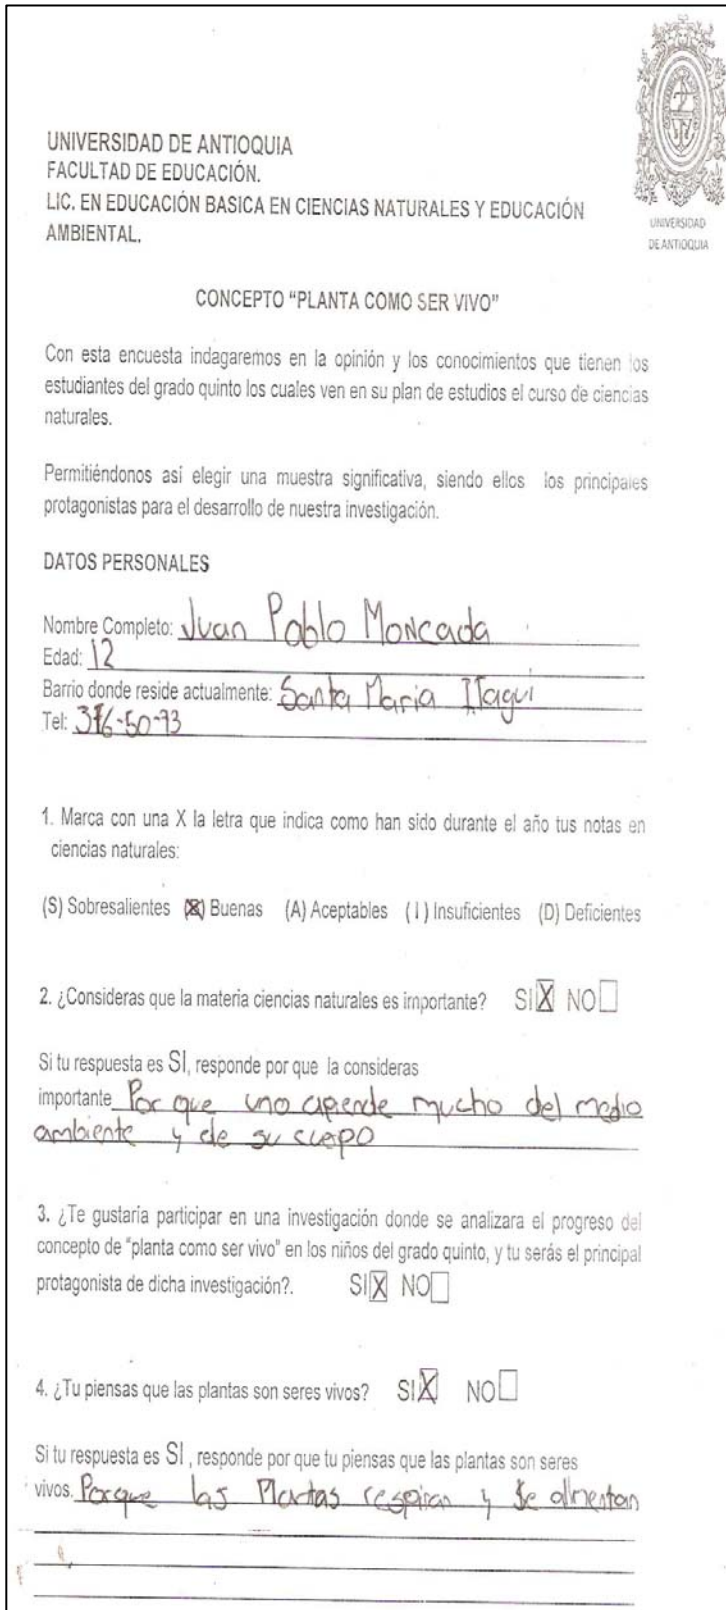 UNIVERSIDAD DE ANTIOQUIA
FACULTAD DE EDUCACIÓN.
LIC. EN EDUCACIÓN BASICA EN CIENCIAS NATURALES Y EDUCACIÓN
AMBIENTAL.
UNIVERSIDAD
DE ANTIOQUIA
CONCEPTO "PLANTA COMO SER VIVO"
Con esta encuesta indagaremos en la opinión y los conocimientos que tienen los
estudiantes del grado quinto los cuales ven en su plan de estudios el curso de ciencias
naturales.
Permitiéndonos así elegir una muestra significativa, siendo ellos los principales
protagonistas para el desarrollo de nuestra investigación.
DATOS PERSONALES
Nombre Completo: Juan Pablo Moncada
Edad: 12
Barrio donde reside actualmente: Santa Maria ITagui
Tel: 376-50-73
1. Marca con una X la letra que indica como han sido durante el año tus notas en
ciencias naturales:
(S) Sobresalientes (X) Buenas (A) Aceptables ( I ) Insuficientes (D) Deficientes
2. ¿Consideras que la materia ciencias naturales es importante? SI X NO
Si tu respuesta es SI, responde por que la consideras
importante Por que uno aprende mucho del medio
ambiente y de su cuepo
3. ¿Te gustaría participar en una investigación donde se analizara el progreso del
concepto de "planta como ser vivo" en los niños del grado quinto, y tu serás el principal
protagonista de dicha investigación?. SI X NO
4. ¿Tu piensas que las plantas son seres vivos? SI X NO
Si tu respuesta es SI, responde por que tu piensas que las plantas son seres
vivos. Porque las Plantas respiran y se alimentan